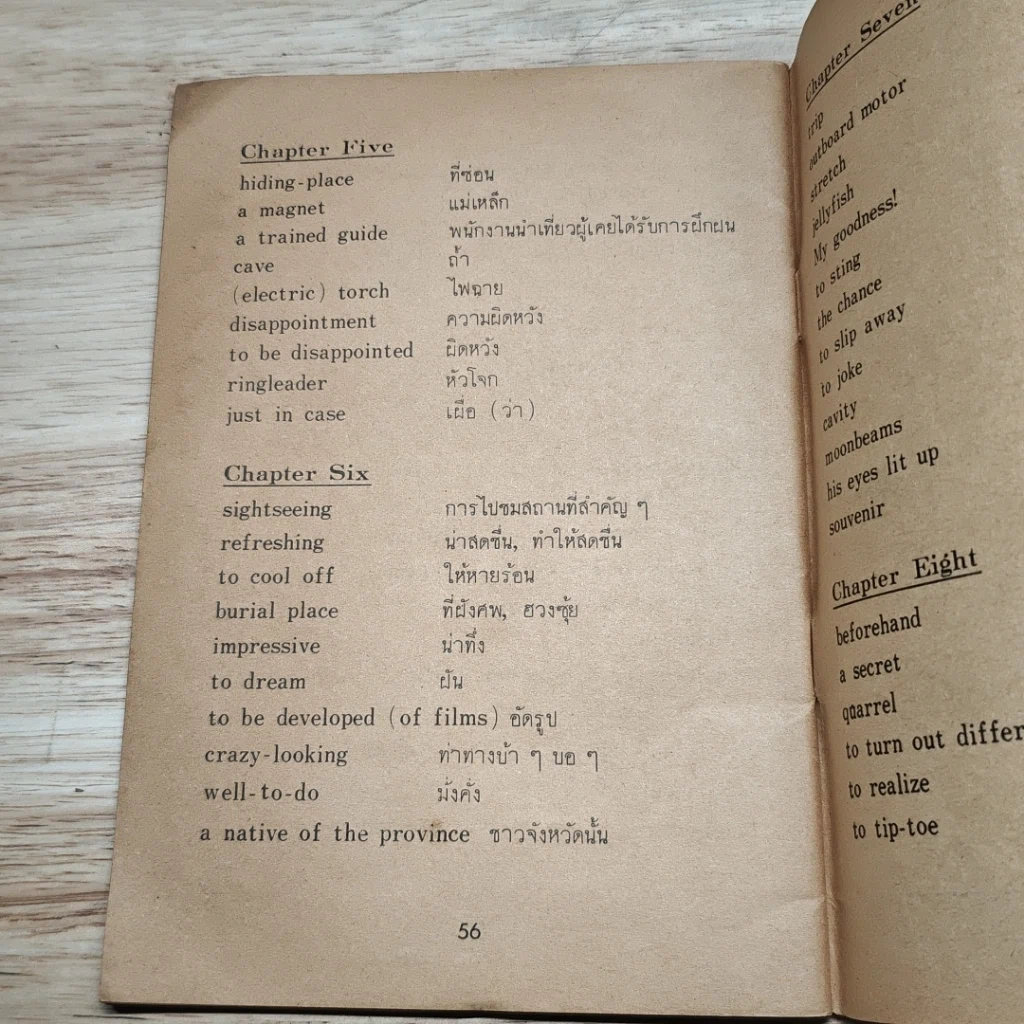 Chapter Five
hiding-place ที่ซ่อน
a magnet แม่เหล็ก
a trained guide พนักงานนำเที่ยวผู้เคยได้รับการฝึกฝน
cave ถ้ำ
(electric) torch ไฟฉาย
disappointment ความผิดหวัง
to be disappointed ผิดหวัง
ringleader หัวโจก
just in case เผื่อ (ว่า)
Chapter Six
sightseeing การไปชมสถานที่สำคัญ ๆ
refreshing น่าสดชื่น, ทำให้สดชื่น
to cool off ให้หายร้อน
burial place ที่ฝังศพ, ฮวงซุ้ย
impressive น่าทึ่ง
to dream ฝัน
to be developed (of films) อัดรูป
crazy-looking ท่าทางบ้า ๆ บอ ๆ
well-to-do มั่งคั่ง
a native of the province ชาวจังหวัดนั้น
56
Chapter Seven
trip
outboard motor
stretch
jellyfish
My goodness!
to sting
the chance
to slip away
to joke
cavity
moonbeams
his eyes lit up
souvenir
Chapter Eight
beforehand
a secret
quarrel
to turn out differ
to realize
to tip-toe